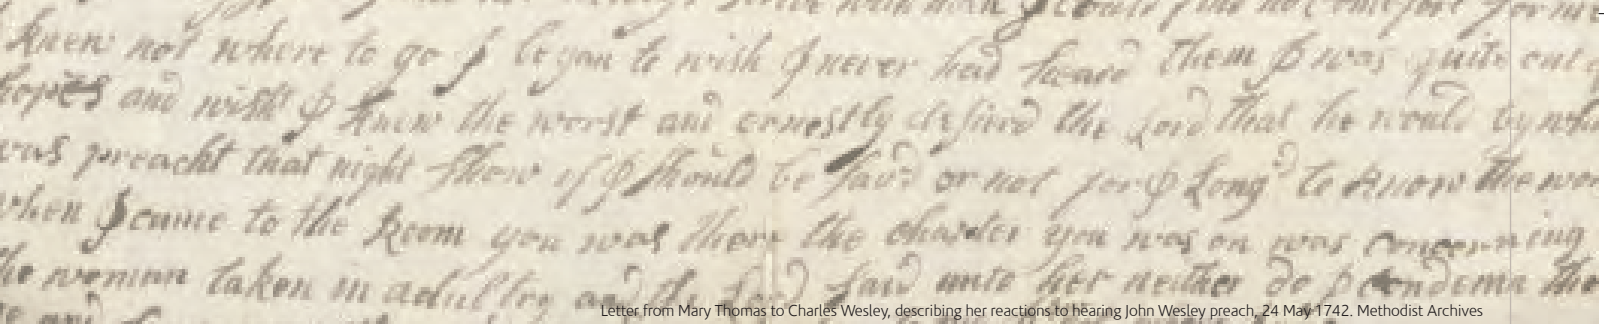 knew not where to go I began to wish I never had heard them I was quite out
hopes and wisht I knew the worst and ernestly desired the Lord that he would by
was preacht that night show if I should be sav'd or not for I Long'd to know the
when I came to the Room you was there the chapter you was on was concerning
the woman taken in adultry and the Lord said unto her neither do I condemn
Letter from Mary Thomas to Charles Wesley, describing her reactions to hearing John Wesley preach, 24 May 1742. Methodist Archives